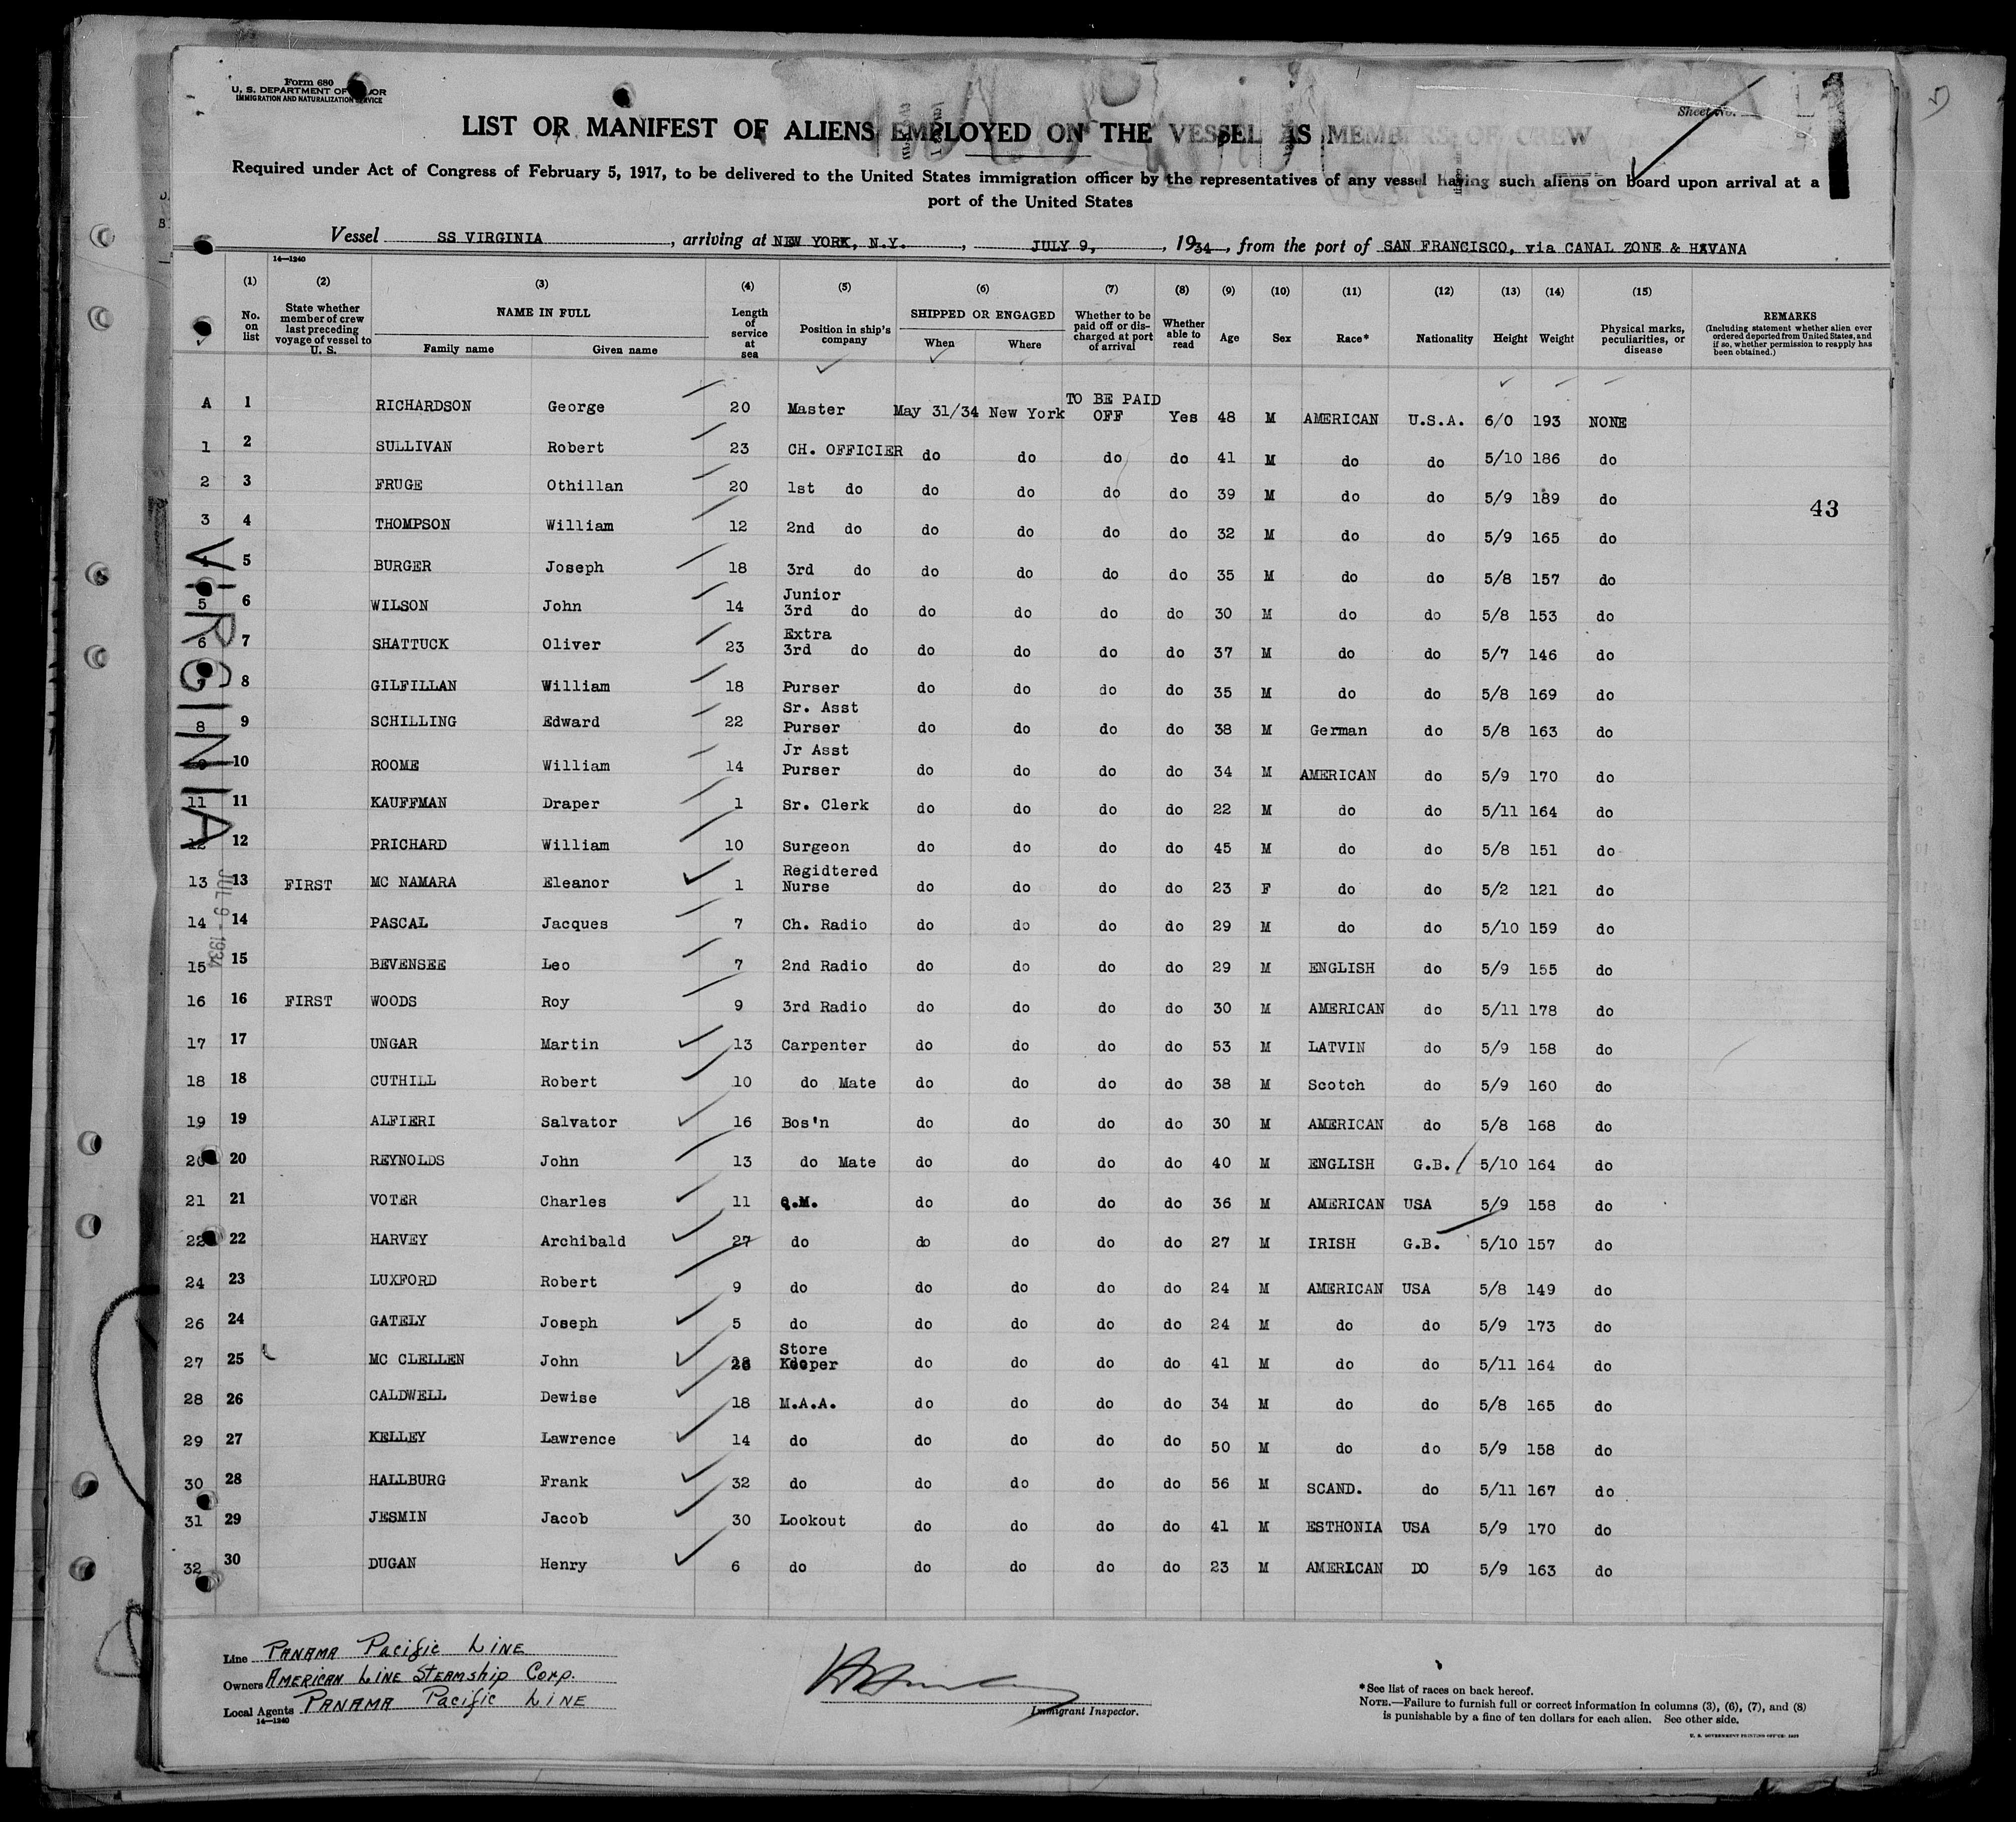 Form 680
U. S. DEPARTMENT OF
IMMIGRATION AND NATURALIZATION SERVICE
Sheet No.
LIST OR MANIFEST OF ALIENS EMPLOYED ON THE VESSEL AS MEMBERS OF CREW
Required under Act of Congress of February 5, 1917, to be delivered to the United States immigration officer by the representatives of any vessel having such aliens on board upon arrival at a
port of the United States
Vessel SS VIRGINIA, arriving at NEW YORK, N.Y., JULY 9, 1934, from the port of SAN FRANCISCO, via CANAL ZONE & HAVANA
14—1240
(1) (2) (3) (4) (5) (6) (7) (8) (9) (10) (11) (12) (13) (14) (15)
No. on list | State whether member of crew last preceding voyage of vessel to U. S. | NAME IN FULL Family name Given name | Length of service at sea | Position in ship's company | SHIPPED OR ENGAGED When Where | Whether to be paid off or discharged at port of arrival | Whether able to read | Age | Sex | Race* | Nationality | Height | Weight | Physical marks, peculiarities, or disease | REMARKS (Including statement whether alien ever ordered deported from United States, and if so, whether permission to reapply has been obtained.)
A 1 RICHARDSON George 20 Master May 31/34 New York TO BE PAID OFF Yes 48 M AMERICAN U.S.A. 6/0 193 NONE
1 2 SULLIVAN Robert 23 CH. OFFICIER do do do do 41 M do do 5/10 186 do
2 3 FRUGE Othillan 20 1st do do do do do 39 M do do 5/9 189 do
43
3 4 THOMPSON William 12 2nd do do do do do 32 M do do 5/9 165 do
5 BURGER Joseph 18 3rd do do do do do 35 M do do 5/8 157 do
5 6 WILSON John 14 Junior 3rd do do do do do 30 M do do 5/8 153 do
6 7 SHATTUCK Oliver 23 Extra 3rd do do do do do 37 M do do 5/7 146 do
8 GILFILLAN William 18 Purser do do do do 35 M do do 5/8 169 do
8 9 SCHILLING Edward 22 Sr. Asst Purser do do do do 38 M German do 5/8 163 do
10 ROOME William 14 Jr Asst Purser do do do do 34 M AMERICAN do 5/9 170 do
11 11 KAUFFMAN Draper 1 Sr. Clerk do do do do 22 M do do 5/11 164 do
12 12 PRICHARD William 10 Surgeon do do do do 45 M do do 5/8 151 do
13 13 FIRST MC NAMARA Eleanor 1 Regidtered Nurse do do do do 23 F do do 5/2 121 do
14 14 PASCAL Jacques 7 Ch. Radio do do do do 29 M do do 5/10 159 do
15 15 BEVENSEE Leo 7 2nd Radio do do do do 29 M ENGLISH do 5/9 155 do
16 16 FIRST WOODS Roy 9 3rd Radio do do do do 30 M AMERICAN do 5/11 178 do
17 17 UNGAR Martin 13 Carpenter do do do do 53 M LATVIN do 5/9 158 do
18 18 CUTHILL Robert 10 do Mate do do do do 38 M Scotch do 5/9 160 do
19 19 ALFIERI Salvator 16 Bos'n do do do do 30 M AMERICAN do 5/8 168 do
20 20 REYNOLDS John 13 do Mate do do do do 40 M ENGLISH G.B. 5/10 164 do
21 21 VOTER Charles 11 Q.M. do do do do 36 M AMERICAN USA 5/9 158 do
22 22 HARVEY Archibald 27 do do do do do 27 M IRISH G.B. 5/10 157 do
24 23 LUXFORD Robert 9 do do do do do 24 M AMERICAN USA 5/8 149 do
26 24 GATELY Joseph 5 do do do do do 24 M do do 5/9 173 do
27 25 MC CLELLEN John Store Keeper do do do do 41 M do do 5/11 164 do
28 26 CALDWELL Dewise 18 M.A.A. do do do do 34 M do do 5/8 165 do
29 27 KELLEY Lawrence 14 do do do do do 50 M do do 5/9 158 do
30 28 HALLBURG Frank 32 do do do do do 56 M SCAND. do 5/11 167 do
31 29 JESMIN Jacob 30 Lookout do do do do 41 M ESTHONIA USA 5/9 170 do
32 30 DUGAN Henry 6 do do do do do 23 M AMERICAN DO 5/9 163 do
VIRGINIA
JUL 9 - 1934
Line PANAMA Pacific LINE
Owners AMERICAN LINE STEAMSHIP CORP.
Local Agents PANAMA Pacific LINE
14—1240
Immigrant Inspector.
*See list of races on back hereof.
NOTE.—Failure to furnish full or correct information in columns (3), (6), (7), and (8)
is punishable by a fine of ten dollars for each alien. See other side.
U. S. GOVERNMENT PRINTING OFFICE